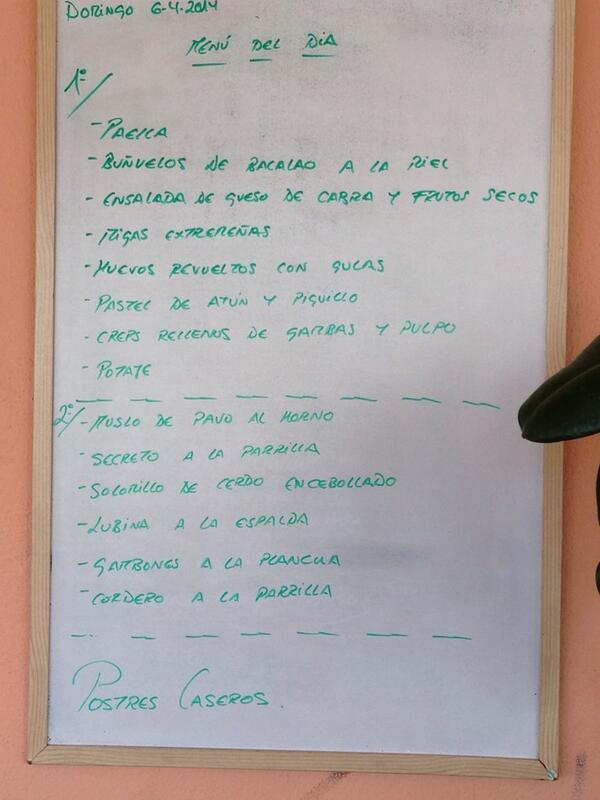 DOMINGO 6-4-2014
MENÚ DEL DIA
1º/
- PAELLA
- BUÑUELOS DE BACALAO A LA MIEL
- ENSALADA DE QUESO DE CABRA Y FRUTOS SECOS
- MIGAS EXTREMEÑAS
- HUEVOS REVUELTOS CON GULAS
- PASTEL DE ATÚN Y PIQUILLO
- CREPS RELLENOS DE GAMBAS Y PULPO
- POTAJE
2º/ - MUSLO DE PAVO AL HORNO
- SECRETO A LA PARRILLA
- SOLOMILLO DE CERDO ENCEBOLLADO
- LUBINA A LA ESPALDA
- GAMBONES A LA PLANCHA
- CORDERO A LA PARRILLA
POSTRES CASEROS.